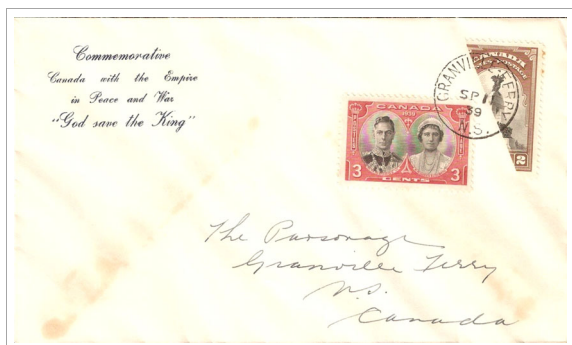 Commemorative
Canada with the Empire
in Peace and War
"God save the King"
GRANVILLE FERRY
SP 1
39
N.S.
CANADA
2
CANADA
1939
3 3
CENTS
The Parsonage
Granville Ferry
N.S.
Canada